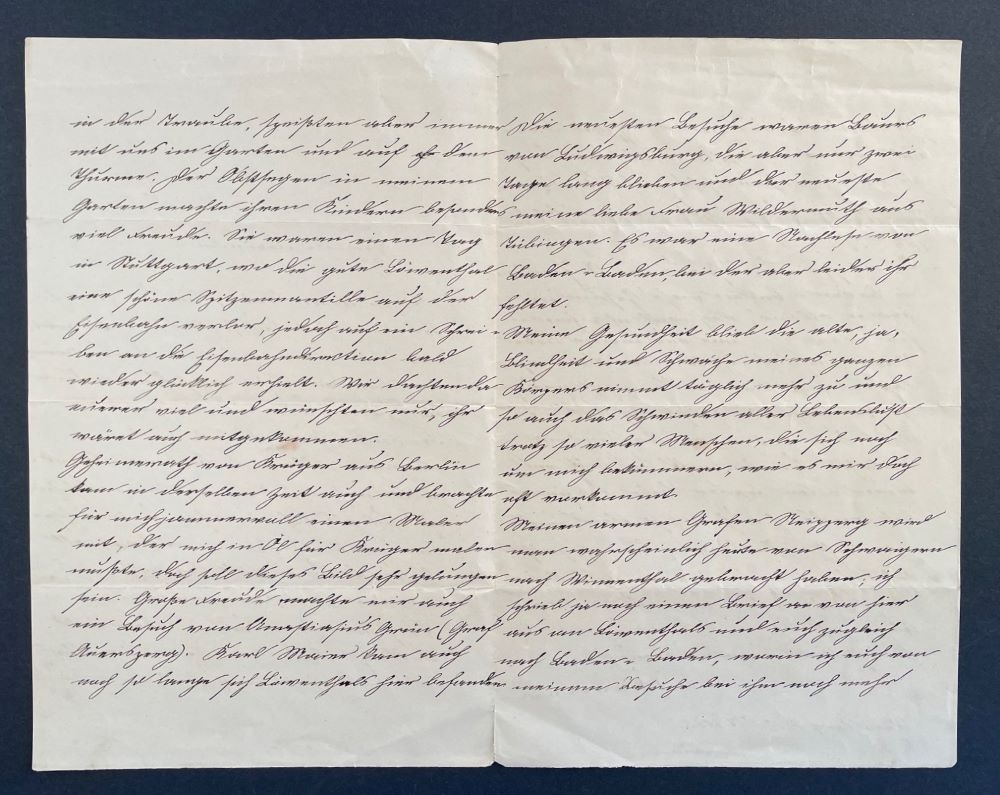 in der Traube, speißten aber immer
mit uns im Garten und auf dem
Thurme. Der Obstsegen in meinem
Garten machte ihren Kindern besonders
viel Freude. Sie waren einen Tag
in Stuttgart, wo die gute Löwenthal
eine schöne Spitzenmantille auf der
Eisenbahn verlor, jedoch auf ein Schrei-
ben an die Eisenbahndirection bald
wieder glücklich erhielt. Wir dachten da
euerer viel und wünschten nur, ihr
wäret auch mitgekommen.
Geheimerath von Krüger aus Berlin
kam in derselben Zeit auch und brachte
für mich jammervoll einen Maler
mit, der mich in Öl für Krüger malen
mußte, doch soll dieses Bild sehr gelungen
sein. Große Freude machte mir auch
ein Besuch von Anastasius Grün (Graf
Auersperg). Karl Maier kam auch
noch so lange sich Löwenthals hier befanden
Die neuesten Besuche waren Baurs
von Ludwigsburg, die aber nur zwei
Tage lang blieben und der neueste
meine liebe Frau Wildermuth aus
Tübingen. Es war eine Nachlese von
Baden-Baden, bei der aber leider ihr
fehltet.
Meine Gesundheit blieb die alte, ja,
Blindheit und Schwäche meines ganzen
Körpers nimmt täglich mehr zu und
so auch das Schwinden aller Lebenslust
trotz so vieler Menschen, die sich noch
um mich bekümmern, wie es mir doch
oft vorkommt.
Meinen armen Grafen Neipperg wird
man wahrscheinlich heute von Schwaigern
nach Winnenthal gebracht haben; ich
schrieb ja noch einen Brief von hier
aus an Löwenthals und euch zugleich
nach Baden-Baden, worin ich euch von
meinem Besuche bei ihm noch mehr